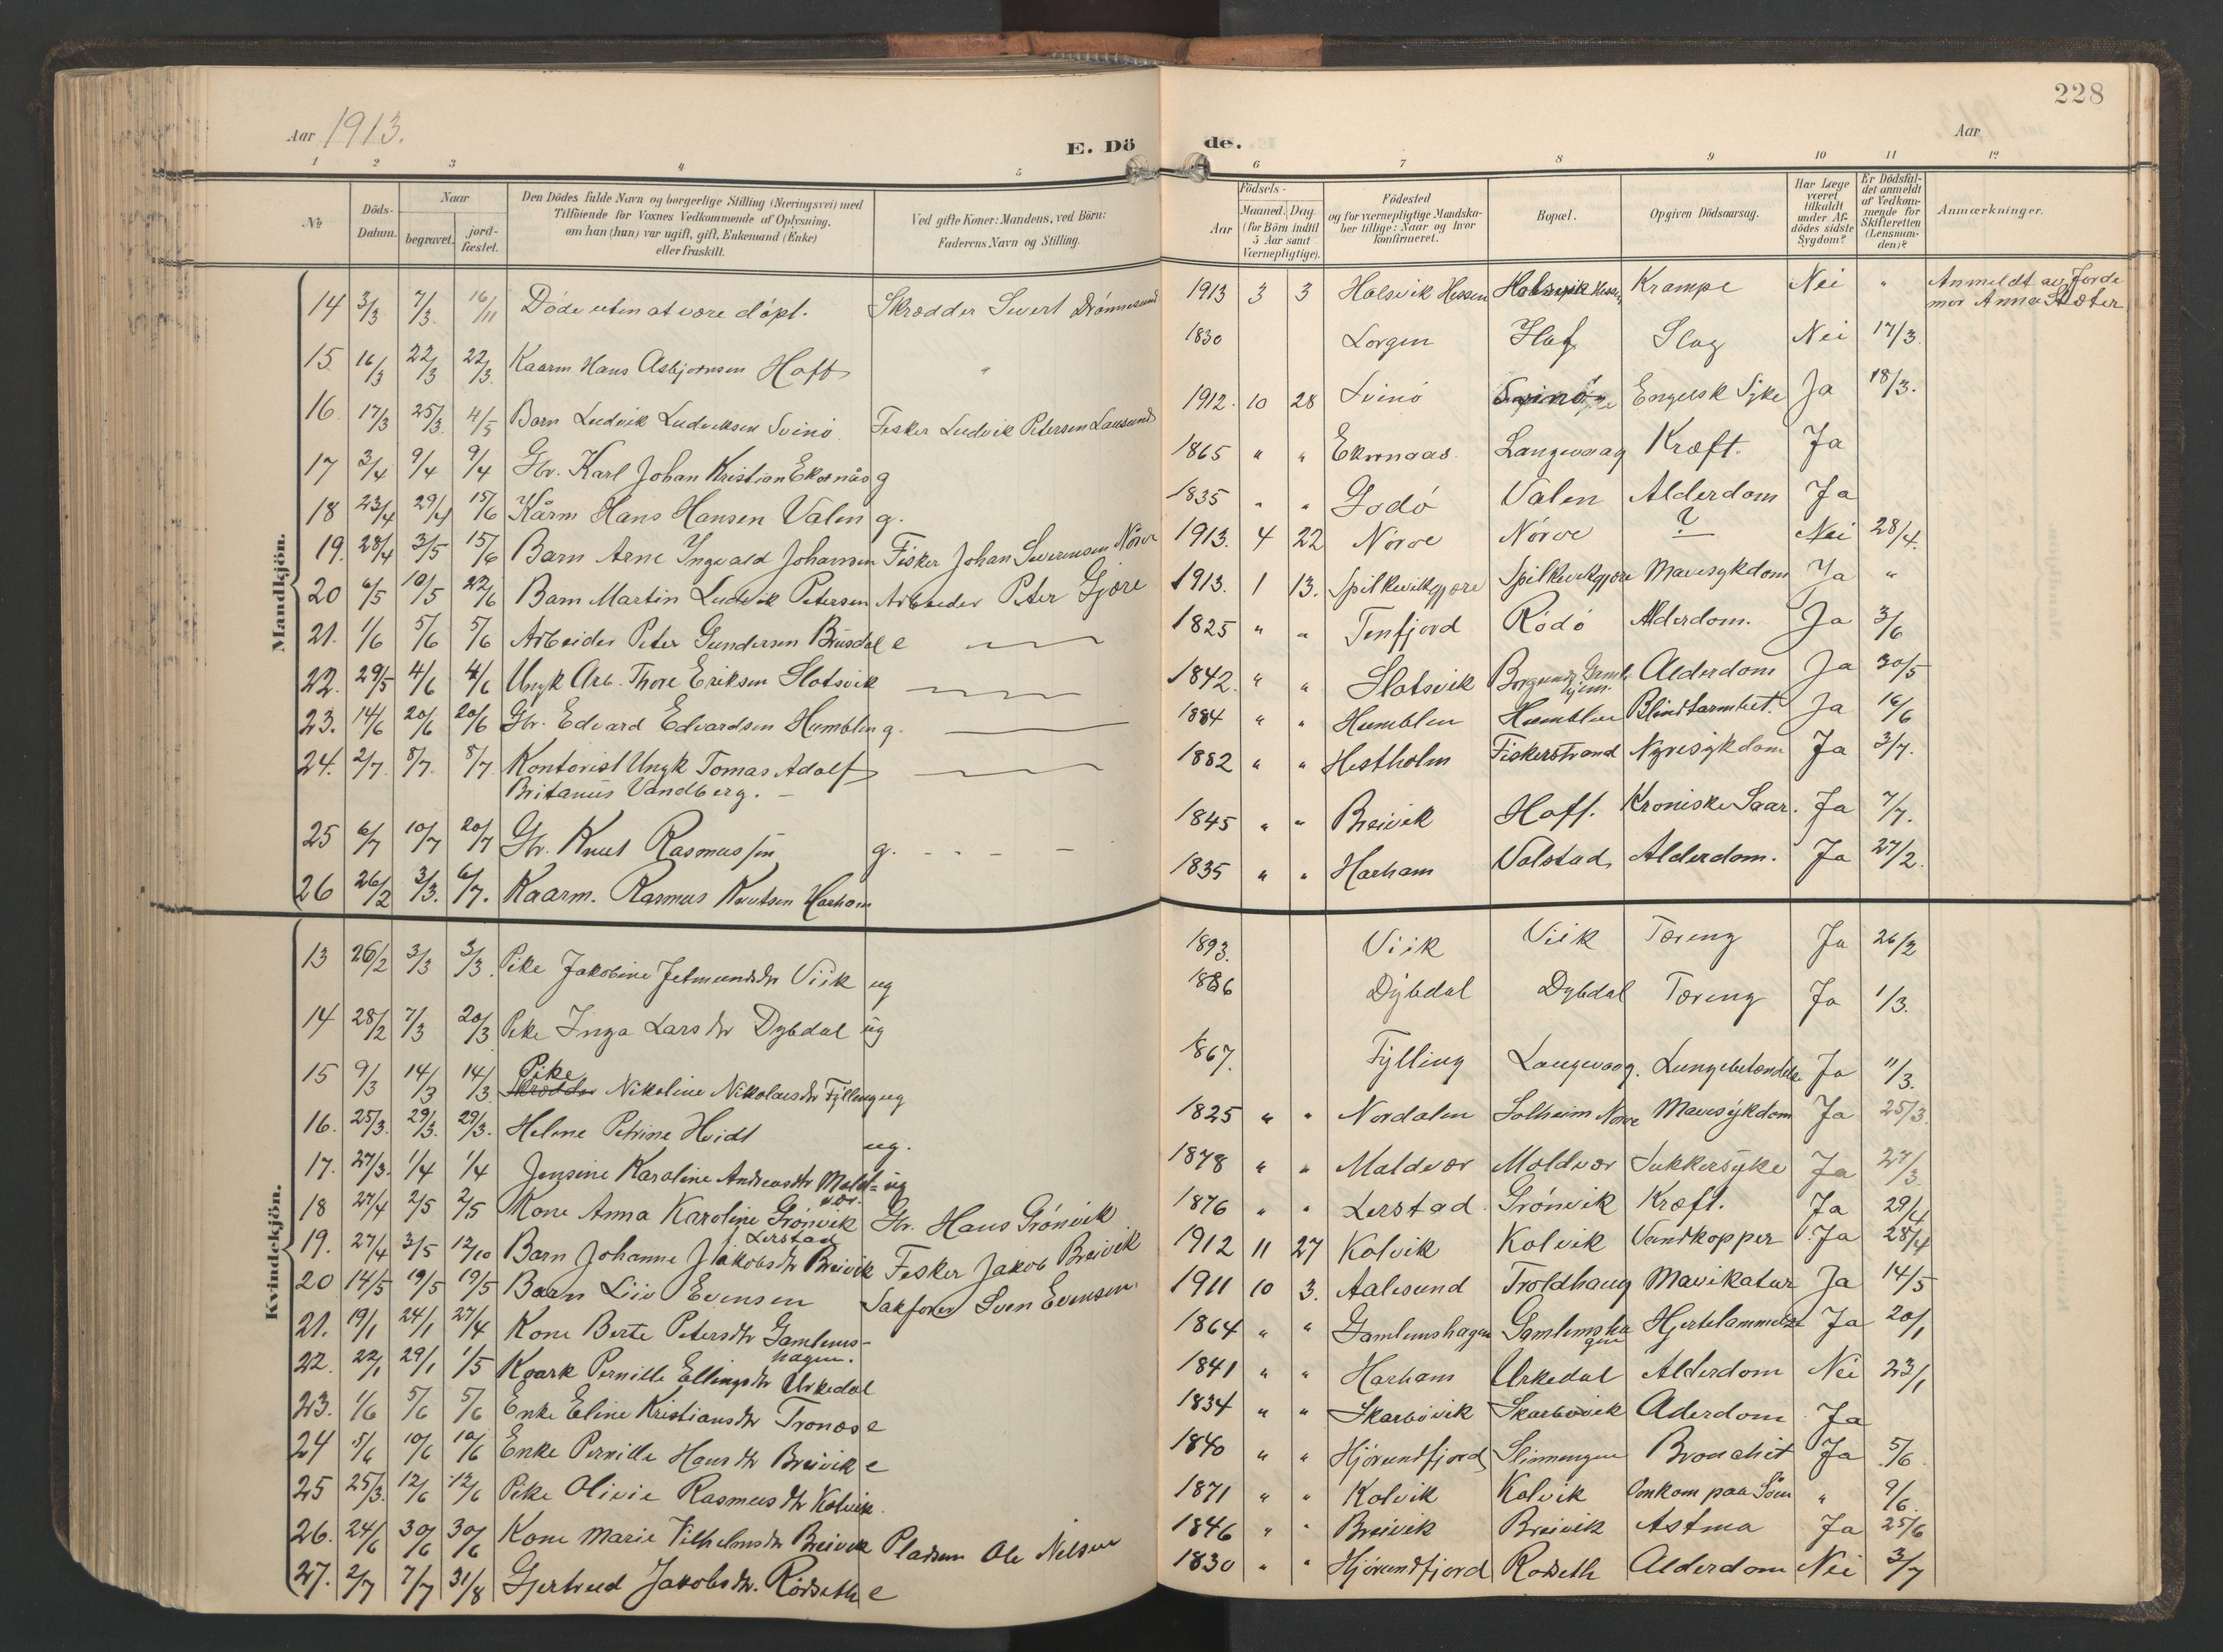 228
Aar 1913.
E. Döde.
Aar
1 2 3 4 5 6 7 8 9 10 11 12
No.
Döds-Datum.
Naar
begravet.
jord-fæstet.
Den Dödes fulde Navn og borgerlige Stilling (Næringsvei) med
Tilföiende for Voxnes Vedkommende af Oplysning,
om han (hun) var ugift, gift, Enkemand (Enke)
eller fraskilt.
Ved gifte Koner: Mandens, ved Börn:
Faderens Navn og Stilling.
Födsels-
Aar
Maaned. Dag.
(for Börn indtil
5 Aar samt
Værnepligtige).
Födested
og for værnepligtige Mandska-
ber tillige: Naar og hvor
konfirmeret.
Bopæl.
Opgiven Dödsaarsag.
Har Læge
været
tilkaldt
under Af-
dödes sidste
Sygdom?
Er Dödsfal-
det anmeldt
af Vedkom-
mende for
Skifteretten
(Lensman-
den)?
Anmærkninger.
Mandkjön.
14 3/3 7/3. 16/11 Döde uten at være döpt. Skrædder Sivert 1913 3 3 Holsvik Hessen Krampe Nei " Anmeldt av Jorde
mor Anna Sæter
15 16/3 22/3 22/3. Kaarm Hans Asbjørnsen Hoff " 1830 Lorgen Hof Slag Nei 17/3.
16 17/3 25/3. 4/5 Barn Ludvik Ludviksen Svinö. Fisker Ludvik Petersen 1912. 10 28 Svinö Svinö Engelsk Syke Ja 18/3.
17 3/4 9/4 9/4 Gbr. Karl Johan Kristian Ekornås g 1865 " " Ekornaas. Langevaag Kræft. Ja
18 23/4 29/4 15/6 Kårm Hans Hansen Valen g. 1835 " " Godö Valen Alderdom Ja
19. 28/4 3/5 15/6 Barn Arne Ingvald Johansen Fisker Johan Severinsen Nörve 1913. 4 22 Nörve Nörve ? Nei 28/4.
20 6/5 10/5 22/6 Barn Martin Ludvik Petersen Arbeider Peter Gjöre 1913. 1 13. Spilkevikgjøre Spilkevikgjøre Mavesykdom Ja "
21. 1/6 5/6 5/6 Arbeider Peter Gundersen Brusdal e 1825 " " Tenfjord Rödö Alderdom. Ja 3/6
22. 29/5 4/6 4/6 Ungk Arb. Thore Eriksen Slotsvik 1842. " " Slotsvik Borgund Gamle
hjem. Alderdom Ja 30/5
23. 14/6 20/6 20/6 Gbr. Edvard Edvardsen Humblen g. 1884 " " Humblen Humblen Blindtarmbet. Ja 16/6
24. 2/7. 8/7. 8/7 Kontorist Ungk Tomas Adolf
Britanius Vandberg. 1882 " " Hestholm Fiskerstrand Nyresykdom Ja 3/7.
25 6/7 10/7 20/7 Gbr. Knut Rasmussen g. 1845 " " Breivik Hoff. Kroniske Saar. Ja 7/7.
26 26/2 3/3. 6/7. Kaarm. Rasmus Knutsen Harham 1835 " " Harham Valstad Alderdom. Ja 27/2.
Kvindekjön.
13 26/2 3/3 3/3. Pike Jakobine Jetmundsdtr Viik ug 1893. Viik Viik Tæring Ja 26/2
14 28/2 7/3 20/3 Pike Inga Larsdtr Dybdal ug 1886 Dybdal Dybdal Tæring Ja 1/3.
15 9/3 14/3 14/3. Pike
Nikoline Nikolaisdtr Fylling ug 1867. Fylling Langevaag. Lungebetændelse Ja 11/3.
16. 25/3. 29/3. 29/3. Helene Petrine Hvidt ug. 1825 " " Nordalen Solheim Nørve Mavesykdom Ja 25/3
17. 27/3. 1/4 1/4 Jensine Karoline Andreasdtr Mald=
vær. ug 1878 " " Maldvær Moldvær Sukkersyke Ja 27/3.
18 27/4 2/5 2/5 Kone Anna Karoline Grönvik
f. Lerstad Gbr. Hans Grönvik 1876 " " Lerstad Grönvik Kræft. Ja 29/4
19. 27/4 3/5 12/10 Barn Johanne Jakobsdtr Breivik Fisker Jakob Breivik 1912 11 27 Kolvik Kolvik Vandkopper Ja 28/4
20 14/5 19/5 19/5 Barn Liiv Evensen Sakförer Sven Evensen 1911 10 3. Aalesund Troldhaug Mavikatar Ja 14/5
21. 19/1 24/1 27/4 Kone Berte Petersdtr Gamlems-
hagen. 1864 " " Gamlemshagen Gamlemsha
gen Hjertelammelse Ja 20/1
22. 22/1 29/1 1/5 Kaark Pernille Ellingsdtr Urkedal 1841 " " Harham Urkedal Alderdom Nei 23/1
23. 1/6 5/6 5/6 Enke Eline Kristiansdtr Tronæs e 1834 " " Skarbövik Skarbövik Aderdom Ja
24 5/6 10/6 10/6 Enke Pernille Hansdtr Breivik e 1840 " " Hjörundfjord Slinningen Bronchit Ja 5/6
25 25/3. 12/6 12/6 Pike Olivie Rasmusdtr Kolvik. 1871 " " Kolvik Kolvik Omkom paa Sjöen " 9/6.
26. 24/6 30/6 30/6 Kone Marie Vilhelmsdtr Breivik Pladsm Ole Nelsen 1846 " " Breivik Breivik Astma Ja 25/6
27. 2/7 7/7 31/8 Gjertrud Jakobsdtr. Rödseth e 1830 " " Hjörundfjord Rodseth Alderdom Nei 3/7